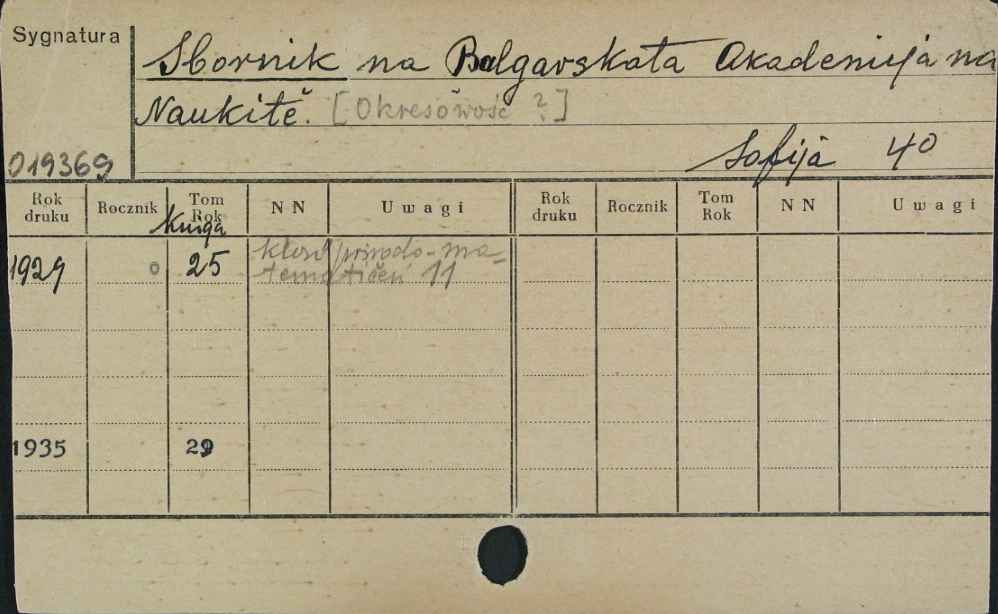 Sygnatura
Sbornik na Balgarskata Akademija na
Naukitě. [Okresowość ?]
Sofija 4⁰
019369
Rok druku Rocznik Tom Rok N N Uwagi Rok druku Rocznik Tom Rok N N Uwagi
Kniga
1929 25 prirodo-ma-
tematičen 11
1935 29